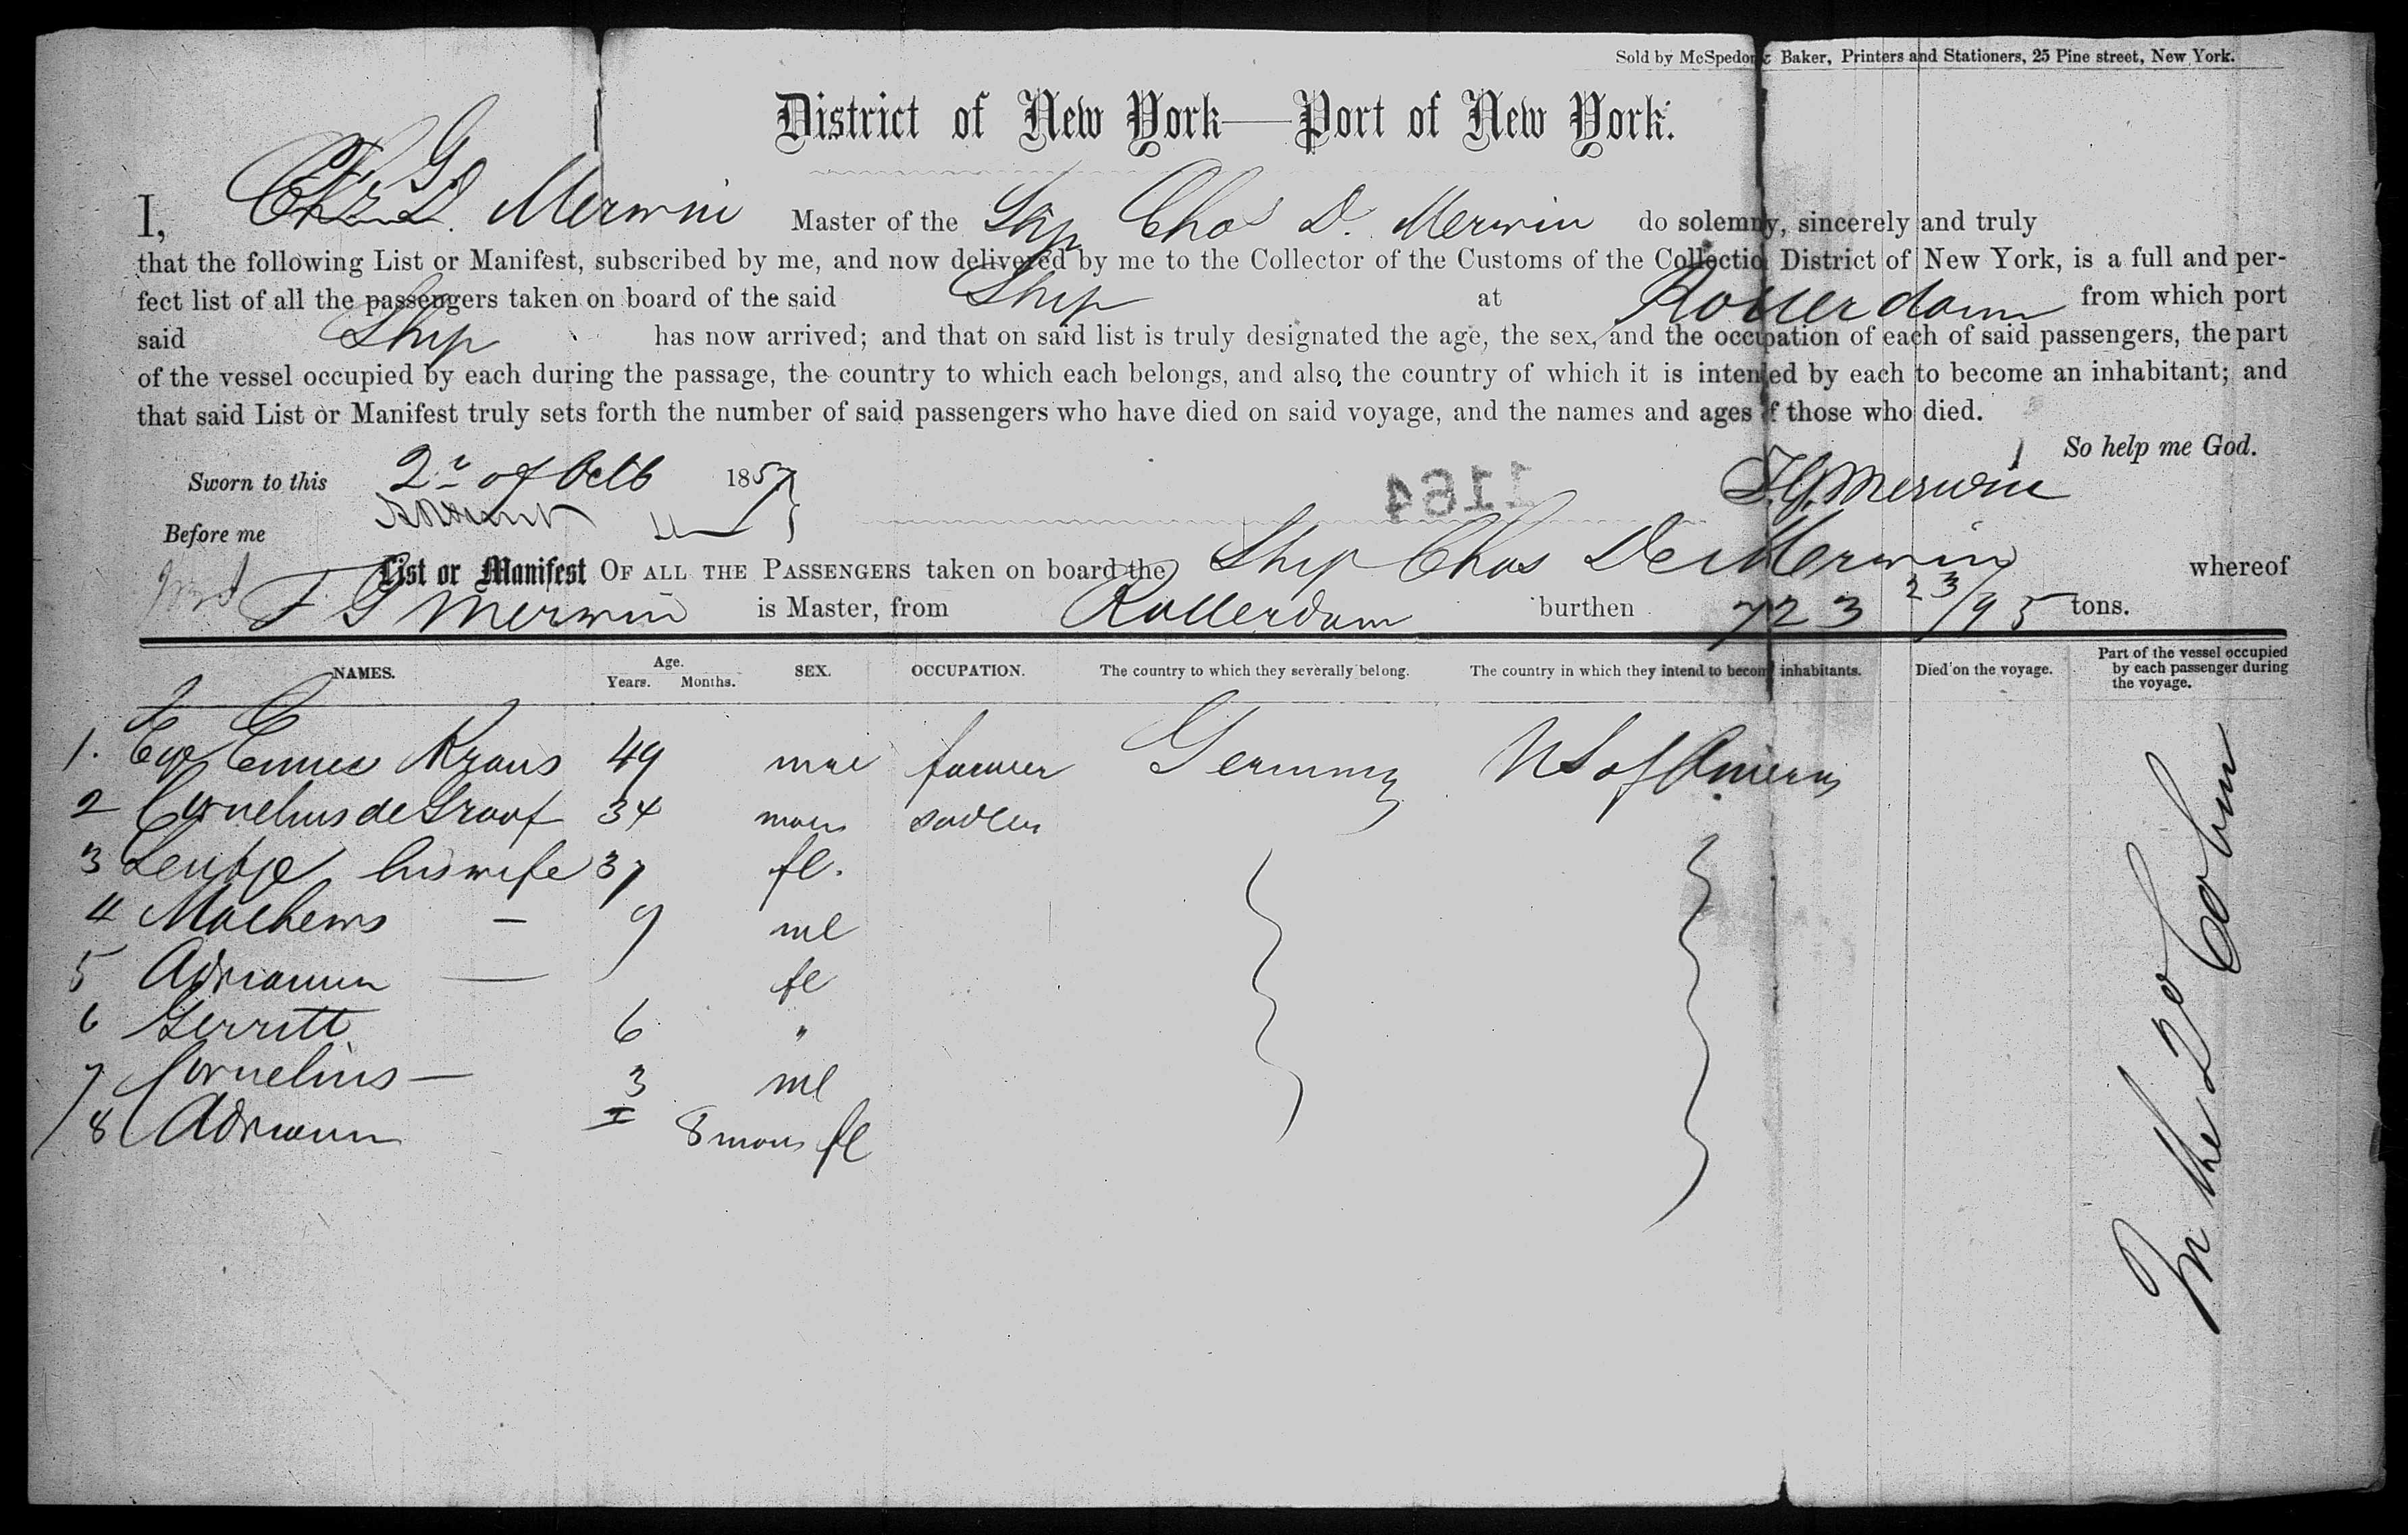 Sold by McSpedon & Baker, Printers and Stationers, 25 Pine street, New York.
District of New York—Port of New York.
I, F. G. Merwin Master of the Ship Chas D. Merwin do solemny, sincerely and truly
that the following List or Manifest, subscribed by me, and now delivered by me to the Collector of the Customs of the Collectio District of New York, is a full and per-
fect list of all the passengers taken on board of the said Ship at Rotterdam from which port
said Ship has now arrived; and that on said list is truly designated the age, the sex, and the occupation of each of said passengers, the part
of the vessel occupied by each during the passage, the country to which each belongs, and also, the country of which it is intended by each to become an inhabitant; and
that said List or Manifest truly sets forth the number of said passengers who have died on said voyage, and the names and ages of those who died.
So help me God.
Sworn to this 2 of Octb 1857
F. G. Merwin
1164
Before me
List or Manifest OF ALL THE PASSENGERS taken on board the Ship Chas De Merwin whereof
F. G Merwin is Master, from Rotterdam burthen 723 23/95 tons.
NAMES. Age. Years. Months. SEX. OCCUPATION. The country to which they severally belong. The country in which they intend to becom inhabitants. Died on the voyage. Part of the vessel occupied by each passenger during the voyage.
1. Kraus 49 farmer Germany US of America
2 Cornelius de Graaf 34
3 his wife 37 fl.
4 Mathews — 9 ml
5 — fl
6 Gerritt 6 "
7 Cornelius — 3 ml
8 8 mons fl
In the 2d Cabin